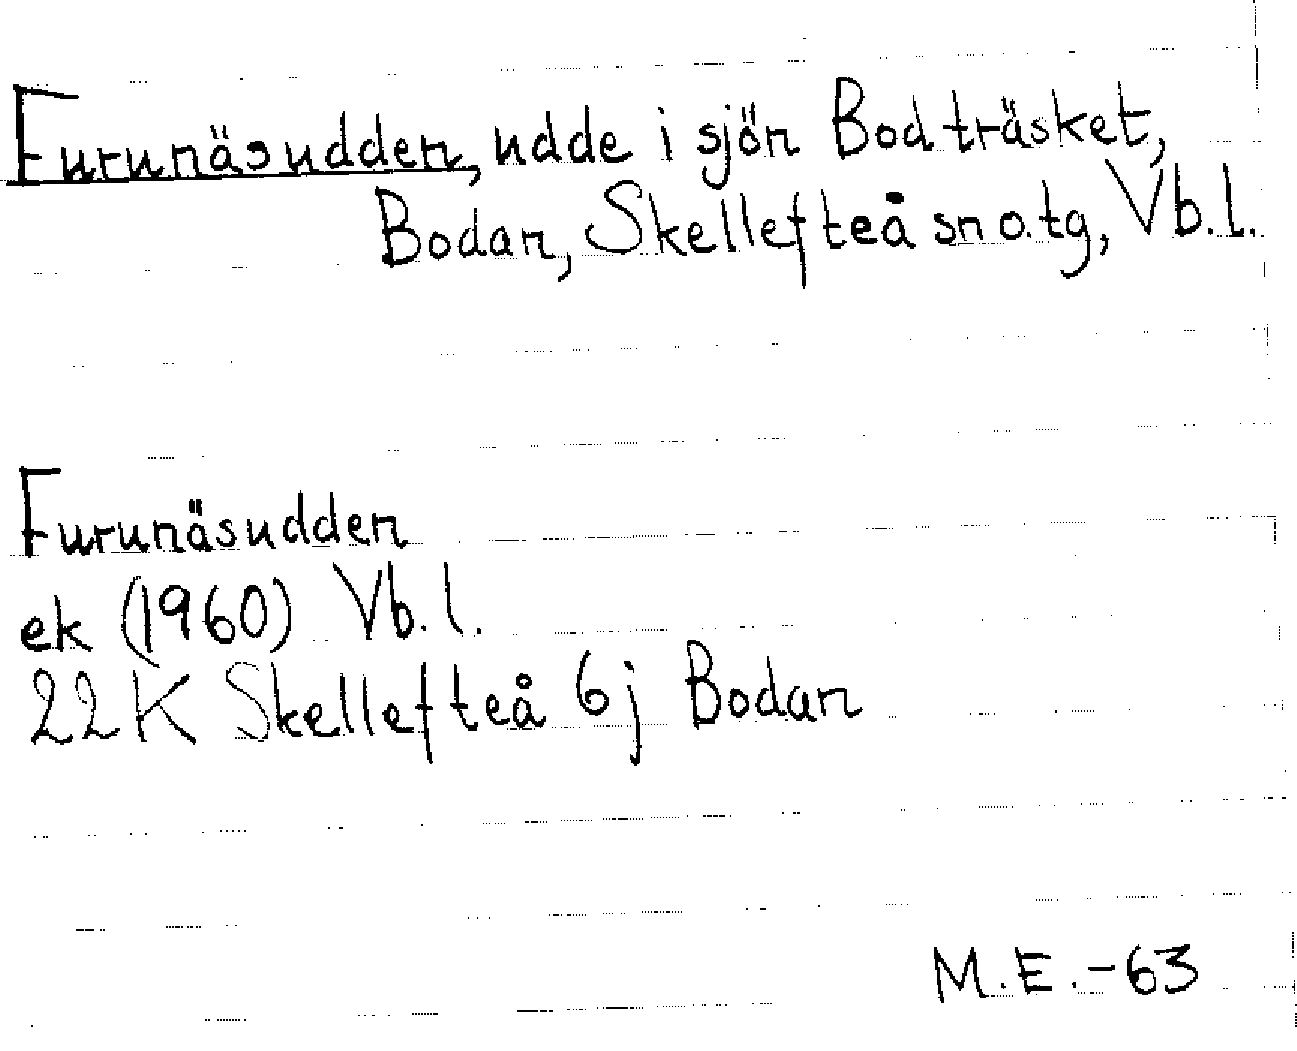 Furunäsudden, udde i sjön Bodträsket,
Bodan, Skellefteå sn o. tg, Vb. l.
Furunäsudden
ek (1960) Vb. l.
22K Skellefteå 6j Bodan
M.E.-63